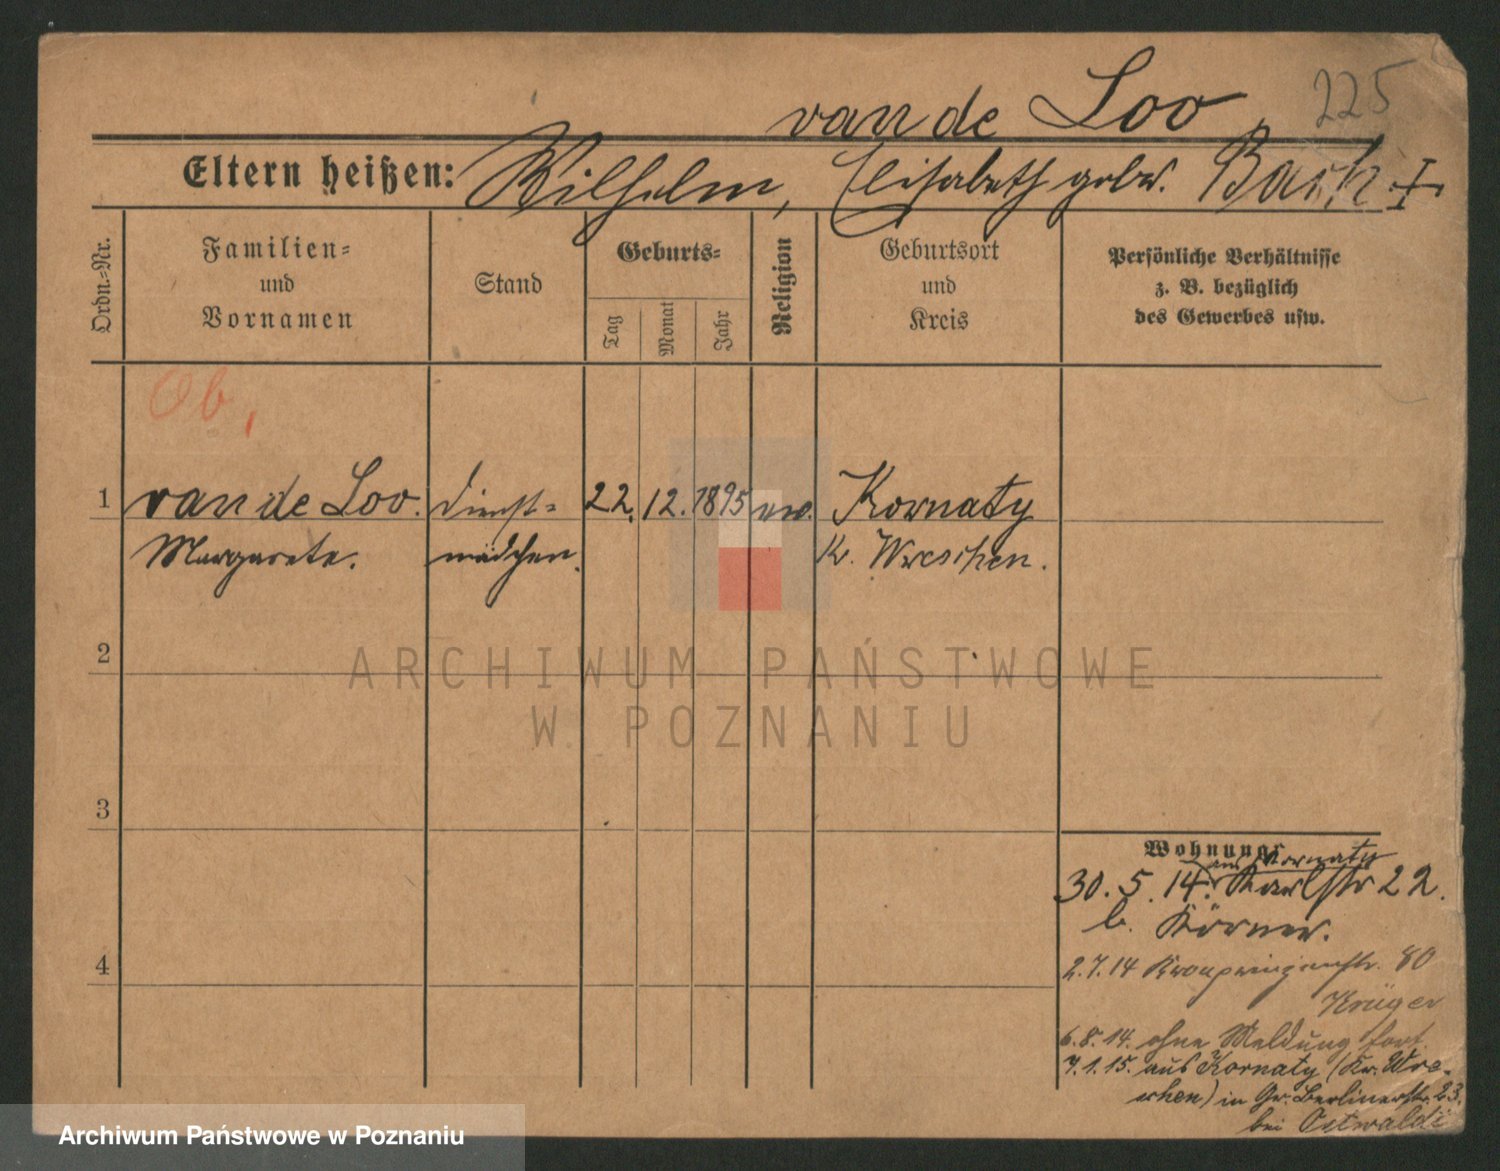 225
van de Loo
Eltern heißen: Wilhelm, Elisabeth gebor. Bark +
Ordn.-Nr.
Familien- und Vornamen
Stand
Geburts-
Tag
Monat
Jahr
Religion
Geburtsort und Kreis
Persönliche Verhältnisse
z. B. bezüglich
des Gewerbes usw.
Ob.
1 van de Loo. Dienst- 22. 12. 1895 ev. Kornaty
Margarete. mädchen. Kr. Wreschen.
2
3
4
Wohnungs
aus Kornaty
30. 5. 14. Karlstr 22.
b. Körner.
2.7.14 Kronprinzenstr. 80
Krüger
6.8.14. ohne Meldung fort.
7.1.15. aus Kornaty (Kr. Wre-
schen) in Gr. Berlinerstr. 23.
bei Ostwaldt
ARCHIWUM PAŃSTWOWE
W POZNANIU
Archiwum Państwowe w Poznaniu